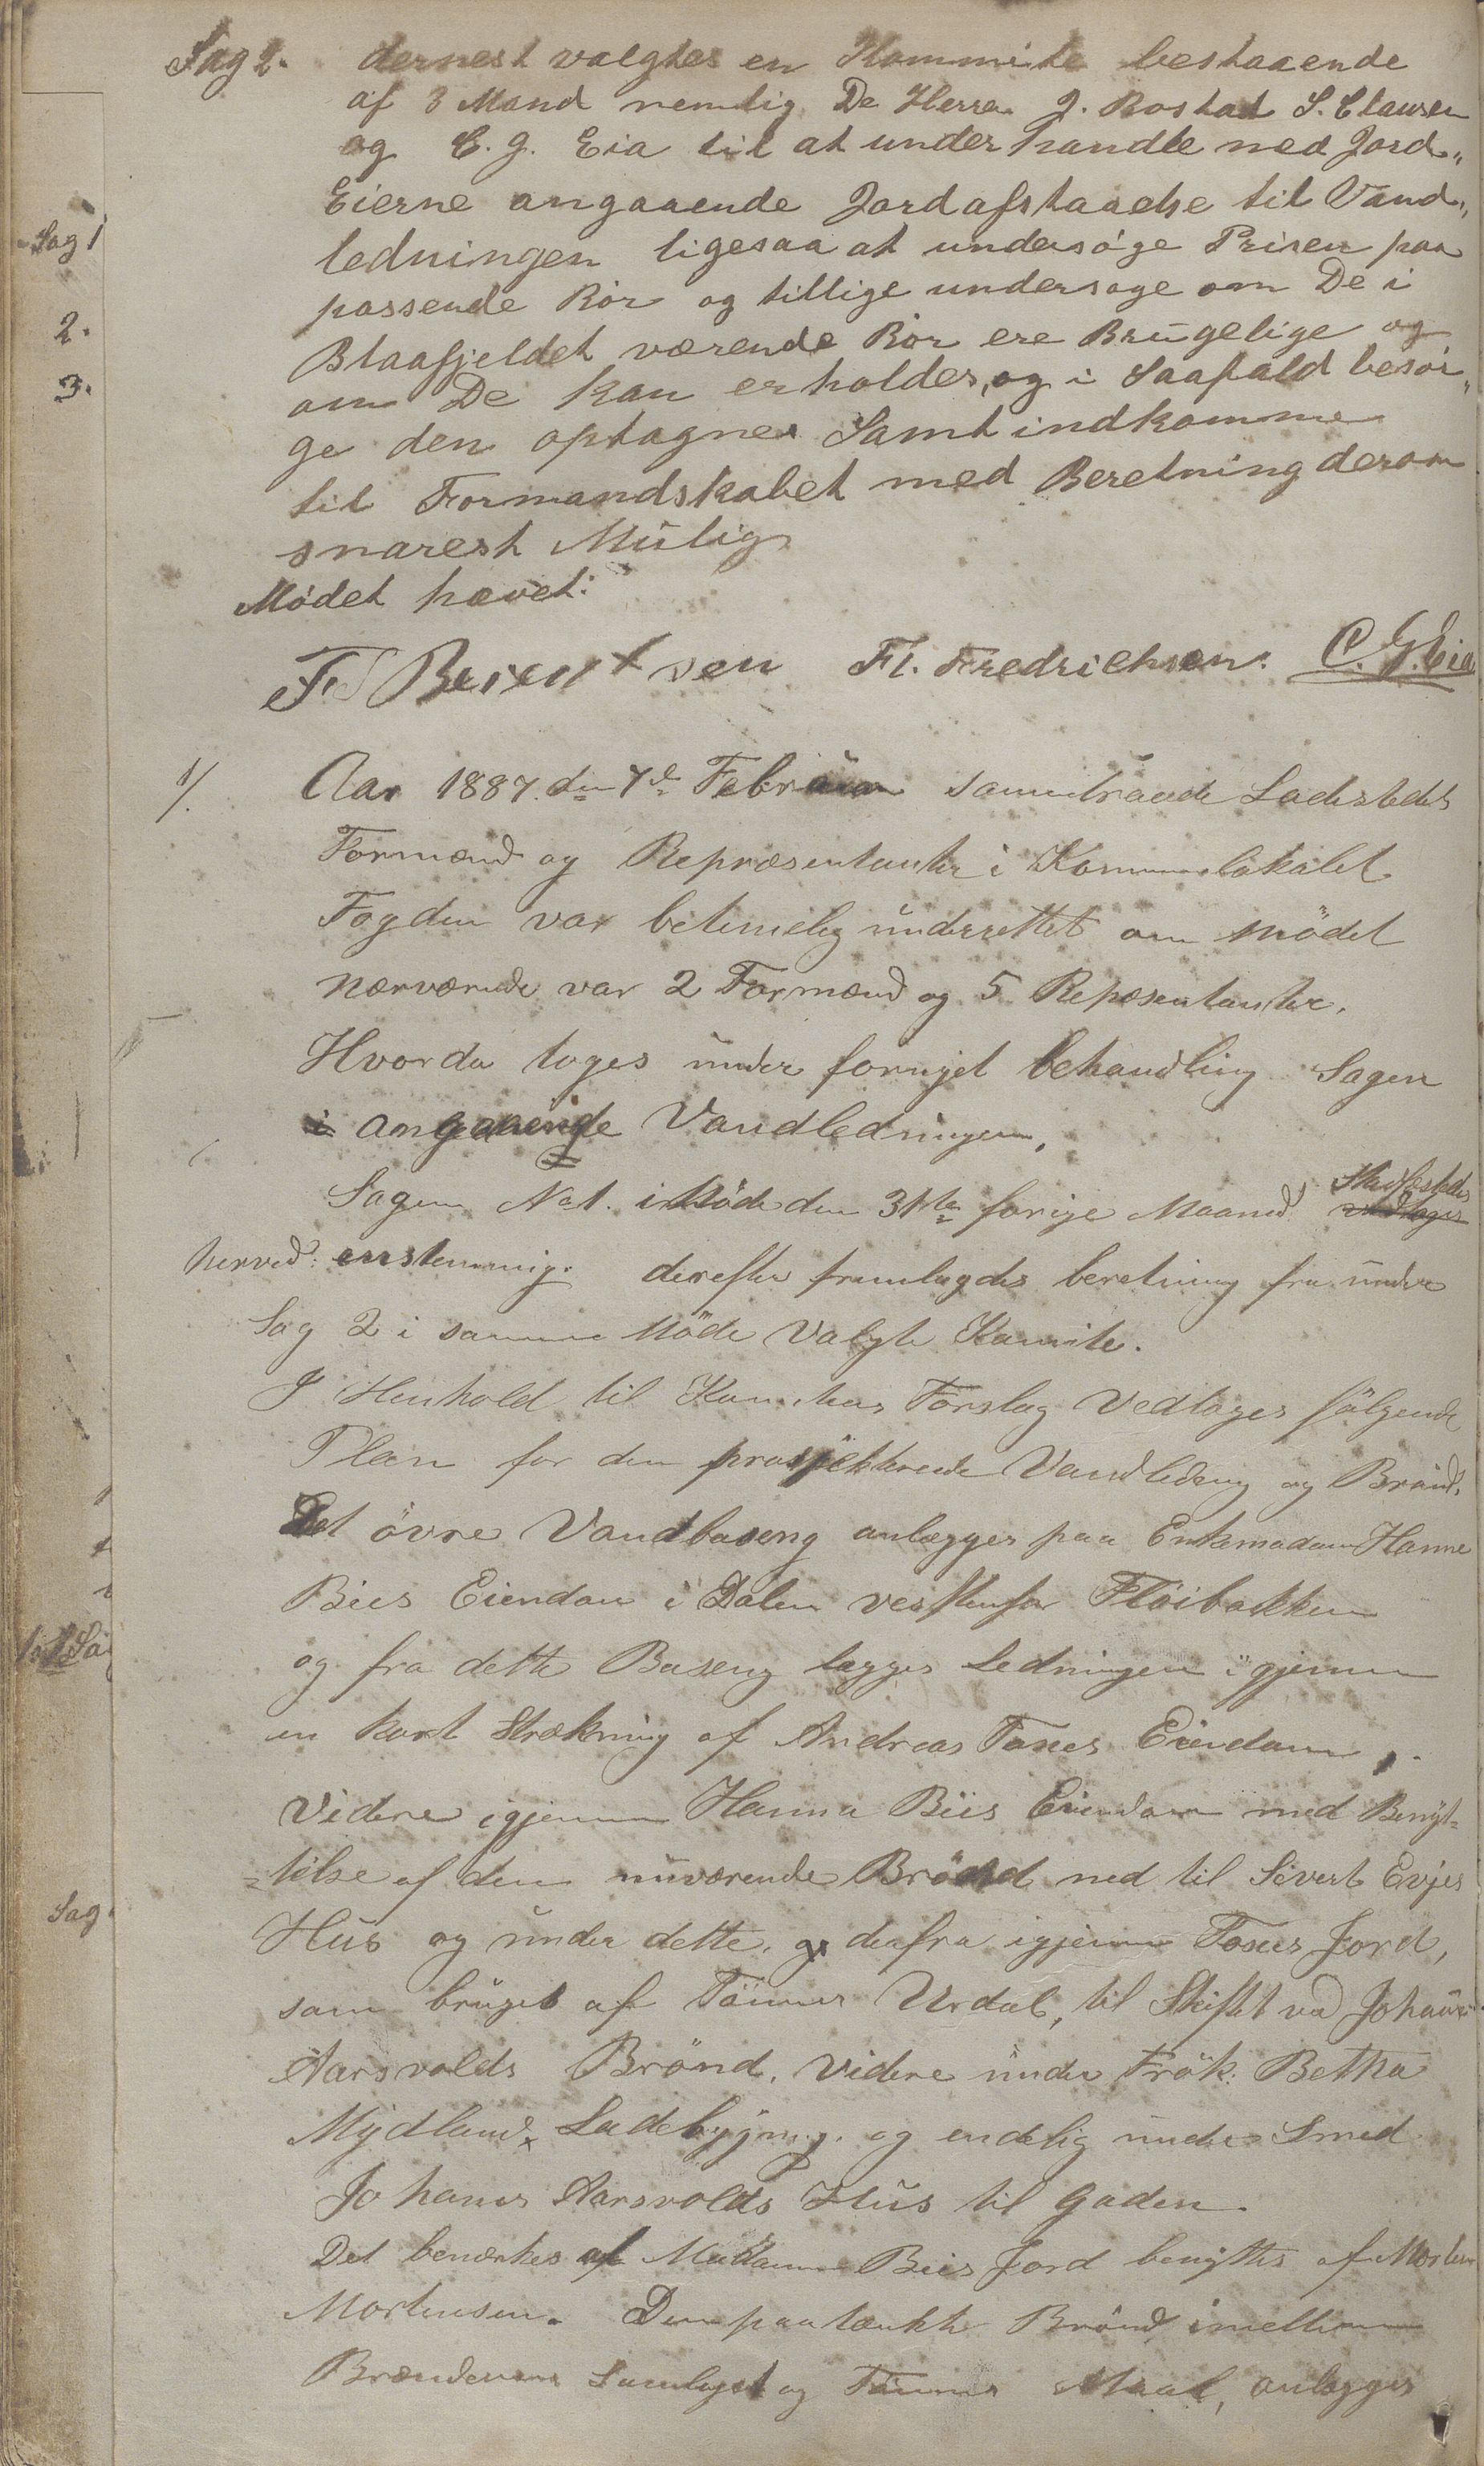 Sag 2. dernest valgtes en Kommite bestaaende
af 3 Mand nemlig De Herrer J. Rostad S. Clausen
og C. G. Eia til at underhandle med Jord„
Eierne angaaende Jordafstaaelse til Vand„
ledningen ligesaa at undersøge Prisen paa
passende Rör og tillige undersøge om De i
Blaafjeldet værende Rör ere Brugelige og
om De kan erholdes, og i Saafald besör„
ge den optagnes Samt indkomme
til Formandskabet med Beretning derom
snarest Mulig
Mödet hævet:
Fl. Fredrichsen. C. G. Eia
1/. Aar 1887. den 7de Februar samentraade Ladestedets
Formænd og Repræsentanter i Kommunelokalet
Fogden var betimelig underrettet om Mödet
nærværende var 2 Formænd og 5 Repæsentanter.
Hvorda toges under fornyet behandling Sagen
i angaaende Vandledningen.
Sagen No 1. i Möde den 31te forige Maaned Stadfæstedes vedtages
herved: enstemmig. derefter fremlagdes beretning fra under
Sag 2 i samme Möde Valgte Komite.
I Henhold til Komiteens Forslag Vedtoges fölgende
Plan for den prosjekterede Vandledning og Brönd.
Det övre Vandbaseng anlægges paa Enkemadam Hanne
Bies Eiendom i Dalen vestenfor Flöibakken
og fra dette Baseng lægges Ledningen igjennem
en kort Strækning af Andreas Foxes Eiendom,
Videre igjennem Hanna Biis Eiendom med Benyt=
=telse af den nuværende Brönd ned til Sivert Evjes
Hus og under dette. og derfra igjennem Foxes Jord,
som bruges af Tönnes Urdal, til Skiftet ved Johannes
Aarsvolds Brönd. Videre under Frök. Betha
Mydland Ladebygning. og endelig under Smed
Johanes Aarsvolds Hus til Gaden.
Det bemærkes at Madamme Biis Jord benyttes af Morten
Mortensen. Den paatænkte Brönd imellem
og Tönnes anlægges
Sag 1
2.
3.
Sag